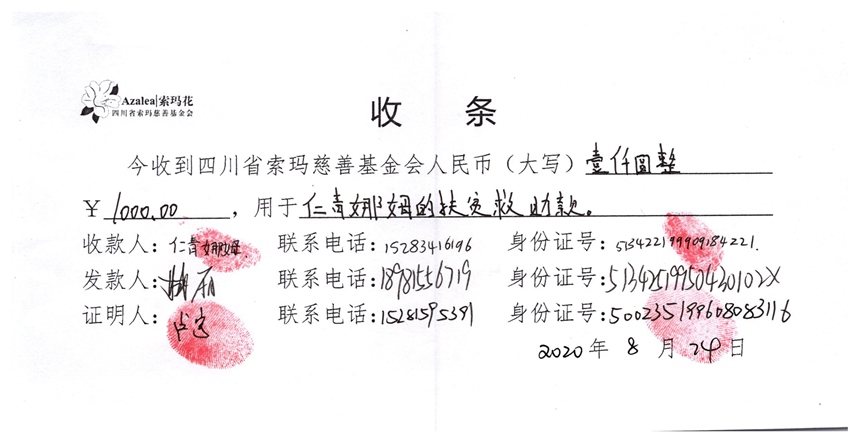 Azalea|索玛花
四川省索玛慈善基金会
收 条
今收到四川省索玛慈善基金会人民币（大写）壹仟圆整
￥1000.00，用于仁青娜姆的扶贫救助款。
收款人：仁青娜姆 联系电话：15283416196 身份证号：513422199909184221.
发款人： 联系电话：18981556719 身份证号：51342519950430102X
证明人： 联系电话：15281595391 身份证号：500235199608083116
2020年8月24日